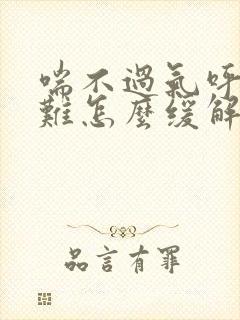 喘不過氣呼
難怎麼緩解
品言有罪